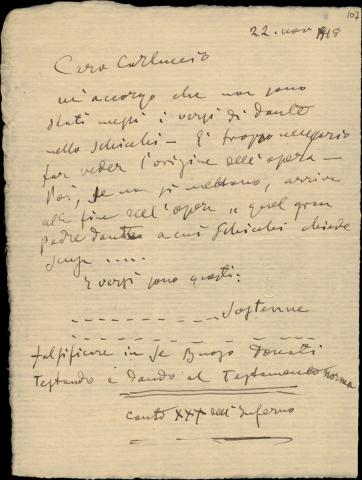 107
22. nov 1918
Caro Carluccio
m'accorgo che non sono
stati messi i versi di Dante
nello Schicchi — È troppo necessario
far veder l'origine dell'opera —
Poi, se non si mettono, arriva
alla fine dell'opera "quel gran
padre Dante a cui Schicchi chiede
scusa .....
I versi sono questi:
_ _ _ _ _ _ _ _ _ _ Sostenne
falsificare in se Buoso Donati
Testando e dando al Testamento norma
Canto XXX dell'Inferno